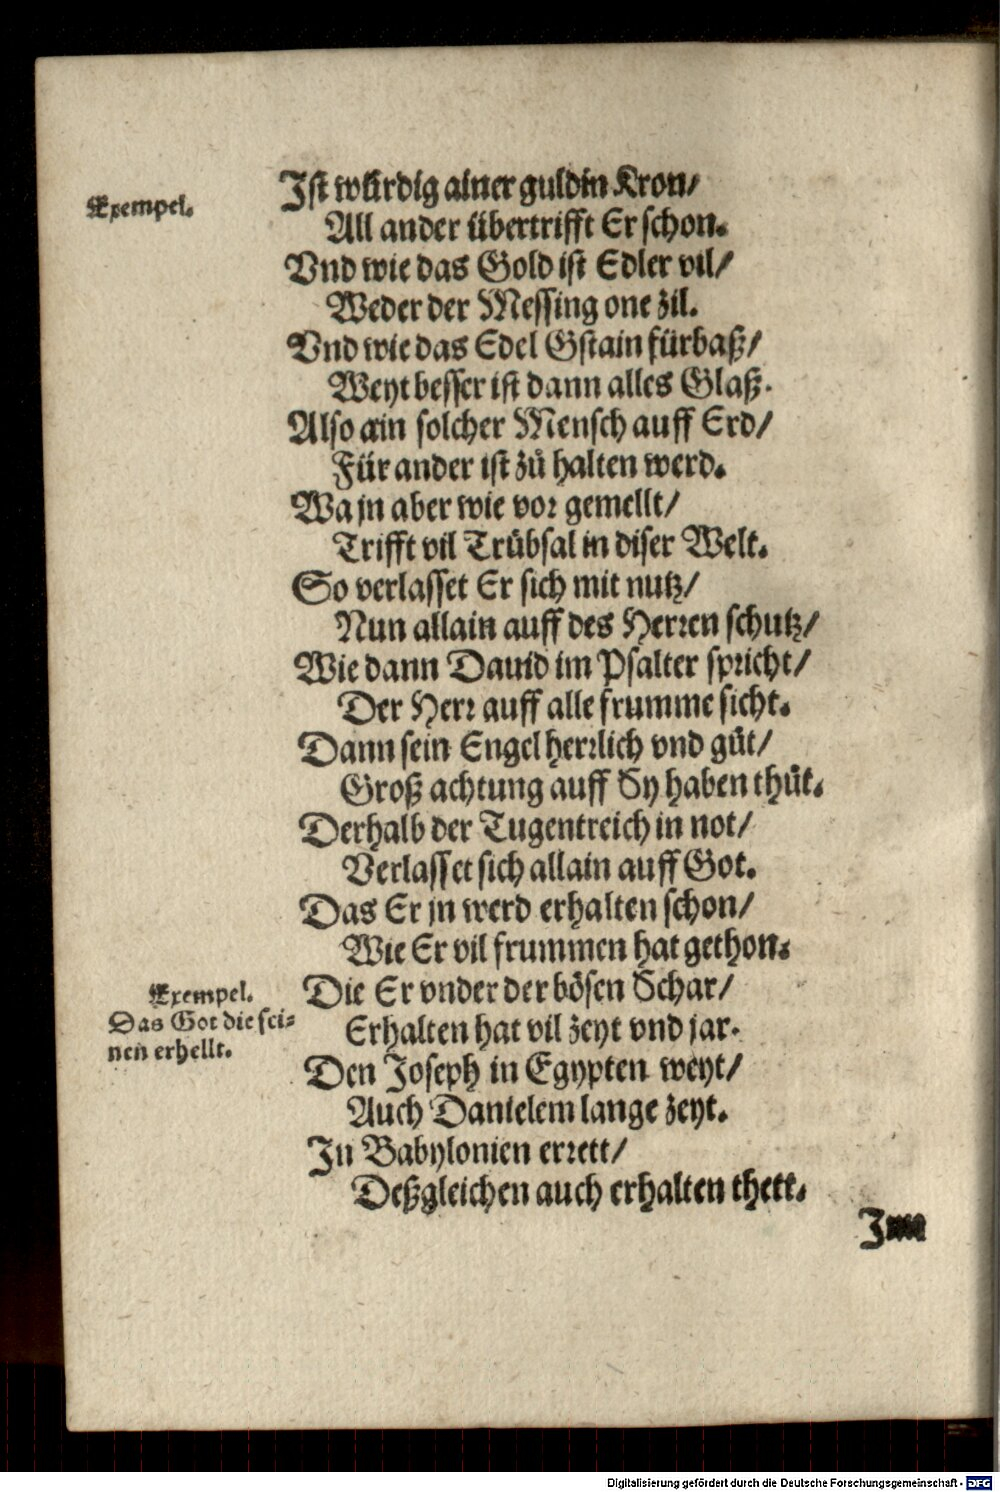 Exempel.
Ist würdig ainer guldin Kron/
All ander übertrifft Er schon.
Vnd wie das Gold ist Edler vil/
Weder der Messing one zil.
Vnd wie das Edel Gstain fürbaß/
Weyt besser ist dann alles Glaß.
Also ain solcher Mensch auff Erd/
Für ander ist zů halten werd.
Wa jn aber wie vor gemellt/
Trifft vil Trübsal in diser Welt.
So verlasset Er sich mit nutz/
Nun allain auff des Herren schutz/
Wie dann Dauid im Psalter spricht/
Der Herr auff alle frumme sicht.
Dann sein Engel herrlich vnd gůt/
Groß achtung auff Sy haben thůt.
Derhalb der Tugentreich in not/
Verlasset sich allain auff Got.
Das Er jn werd erhalten schon/
Wie Er vil frummen hat gethon.
Exempel.
Das Got die sei-
nen erhellt.
Die Er vnder der bösen Schar/
Erhalten hat vil zeyt vnd jar.
Den Joseph in Egypten weyt/
Auch Danielem lange zeyt.
In Babylonien errett/
Deßgleichen auch erhalten thett.
Digitalisierung gefördert durch die Deutsche Forschungsgemeinschaft - DFG